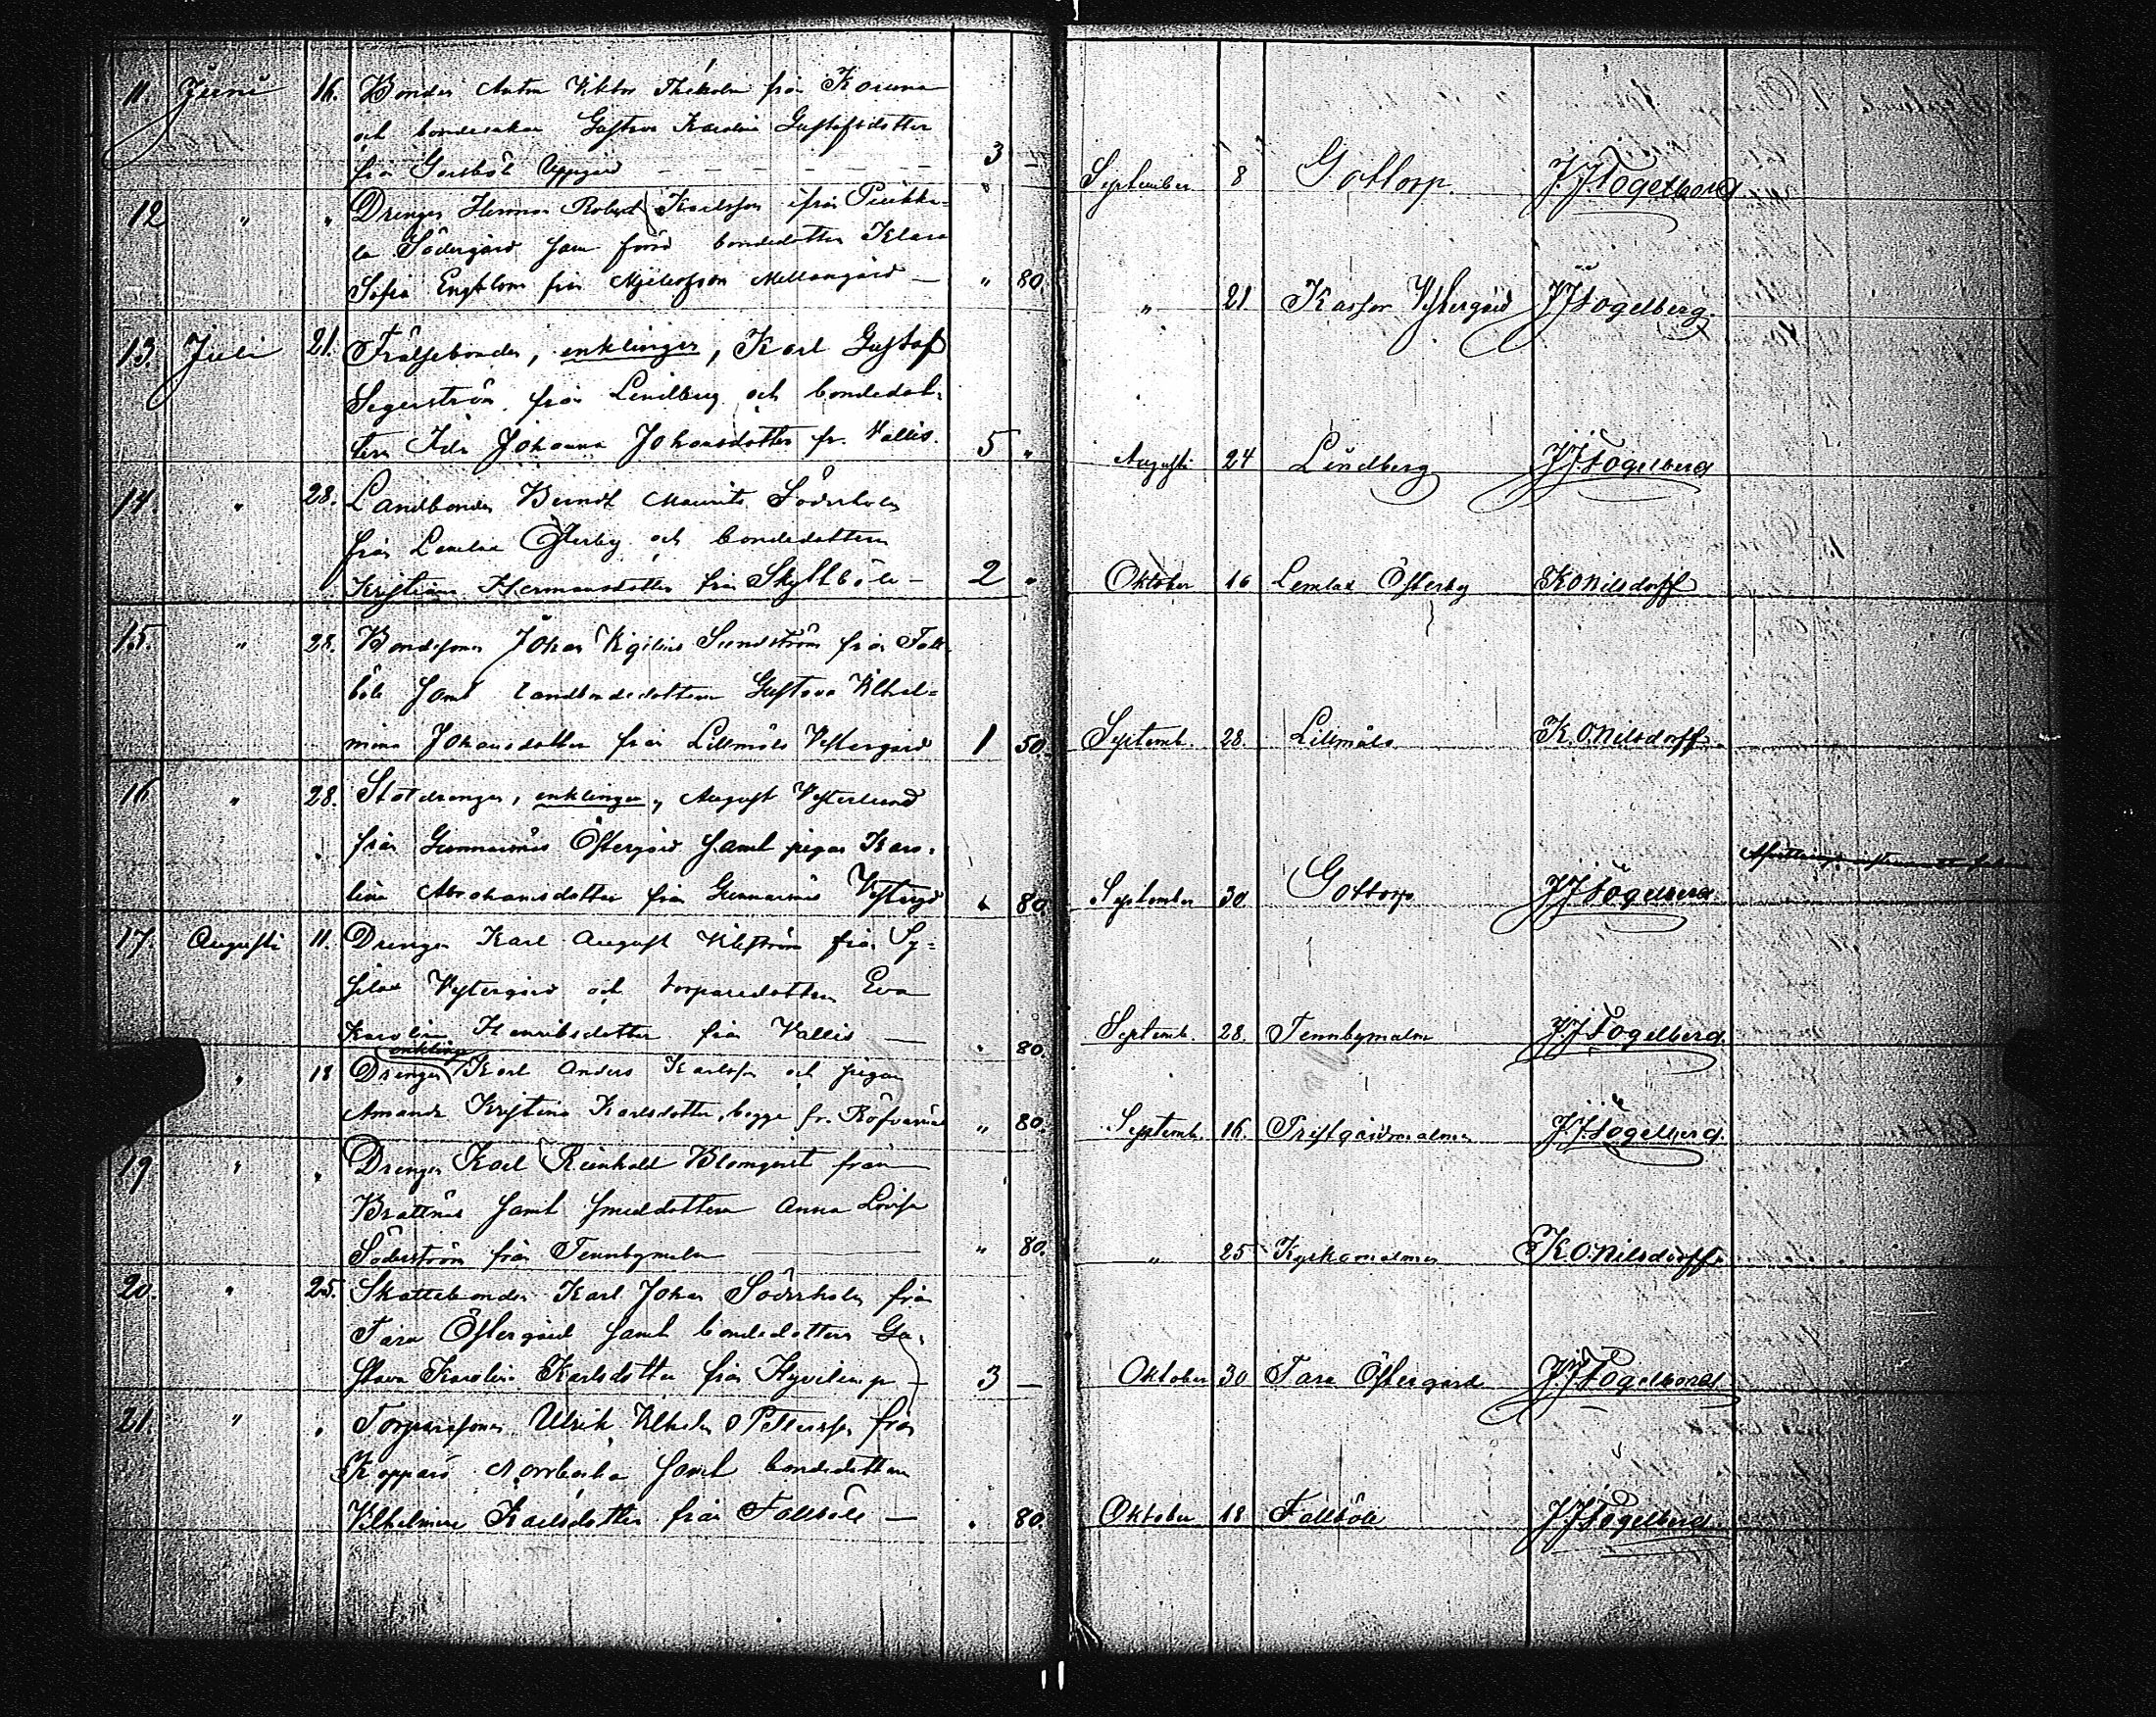 11. Juni 16. Bonden Anton Viktor Thekolin från Koruna
och bondeenkan Gustava Karolina Gustafsdotter
från Garsböle Uppgård 3 — September 8 Gottorp. J. J. Fogelberg
12 " " Drengen Herman Robert Karlsson ifrån Piukka-
la Södergård samt bondedottren Klara
Sofia Engblom från Mellangård — " 80. " 21 Vestergård J J Fogelberg
13. Juli 21. Frälsebonden, enklingen, Karl Gustaf
Segerström från Lindberg och bondedot-
tren Ida Johanna Johansdotter fr. Vallis. 5 " Augusti 24 Lindberg J J Fogelberg
14. " 28. Landbonden Berndt Maurits Söderholm
från Lemlax Österby och bondedottren
Kristina Hermansdotter från Skyttböle — 2 " Oktober 16 Lemlax Österby K O Nilsdorff
15. " 28. Bondesonen Johan Vigilius Sundström från Fall-
böle samt landbondedottren Gustava Vilhel-
mina Johansdotter från Lillmälö Vestergård 1 50. Septemb. 28. Lillmälö K. O. Nilsdorff.
16 " 28. Statdrengen, enklingen, August Vesterlund
från Gunnarsnäs Östergård samt pigan Karo-
lina Abrahamsdotter från Gunnarsnäs Vestergd " 80 September 30 Gottorp J J Fogelberg
17. Augusti 11. Drengen Karl August Vikström från Sy-
silax Vestergård och torparedottren Eva
Karolina Henriksdotter från Vallis — " 80. Septemb. 28. Tennbymalm J. J. Fogelberg.
enkling
" 18 Drengen Karl Anders Karlsson och pigan
Amanda Kristina Karlsdotter, begge fr. Röfvarnäs " 80. Septemb. 16. J. J. Fogelberg.
19 " " Drengen Karl Reinhold Blomqvist från
Brattnäs samt smeddottren Anna Lovisa
Söderström från Tennbymalm — " 80. " 25 Kyrkomalmen K. O. Nilsdorff.
20. " 25. Skattebonden Karl Johan Söderholm från
Tara Östergård samt bondedottren Gu-
stava Karolina Karlsdotter från Hyvilemp — 3 — Oktober 30 Tara Östergård J J Fogelberg
21. " " Torparesonen Ulrik Vilhelm Pettersson från
Koppars Norrbacka samt bondedottren
Vilhelmina Karlsdotter från Fallböle — " 80. Oktober 18 Fallböle J J Fogelberg